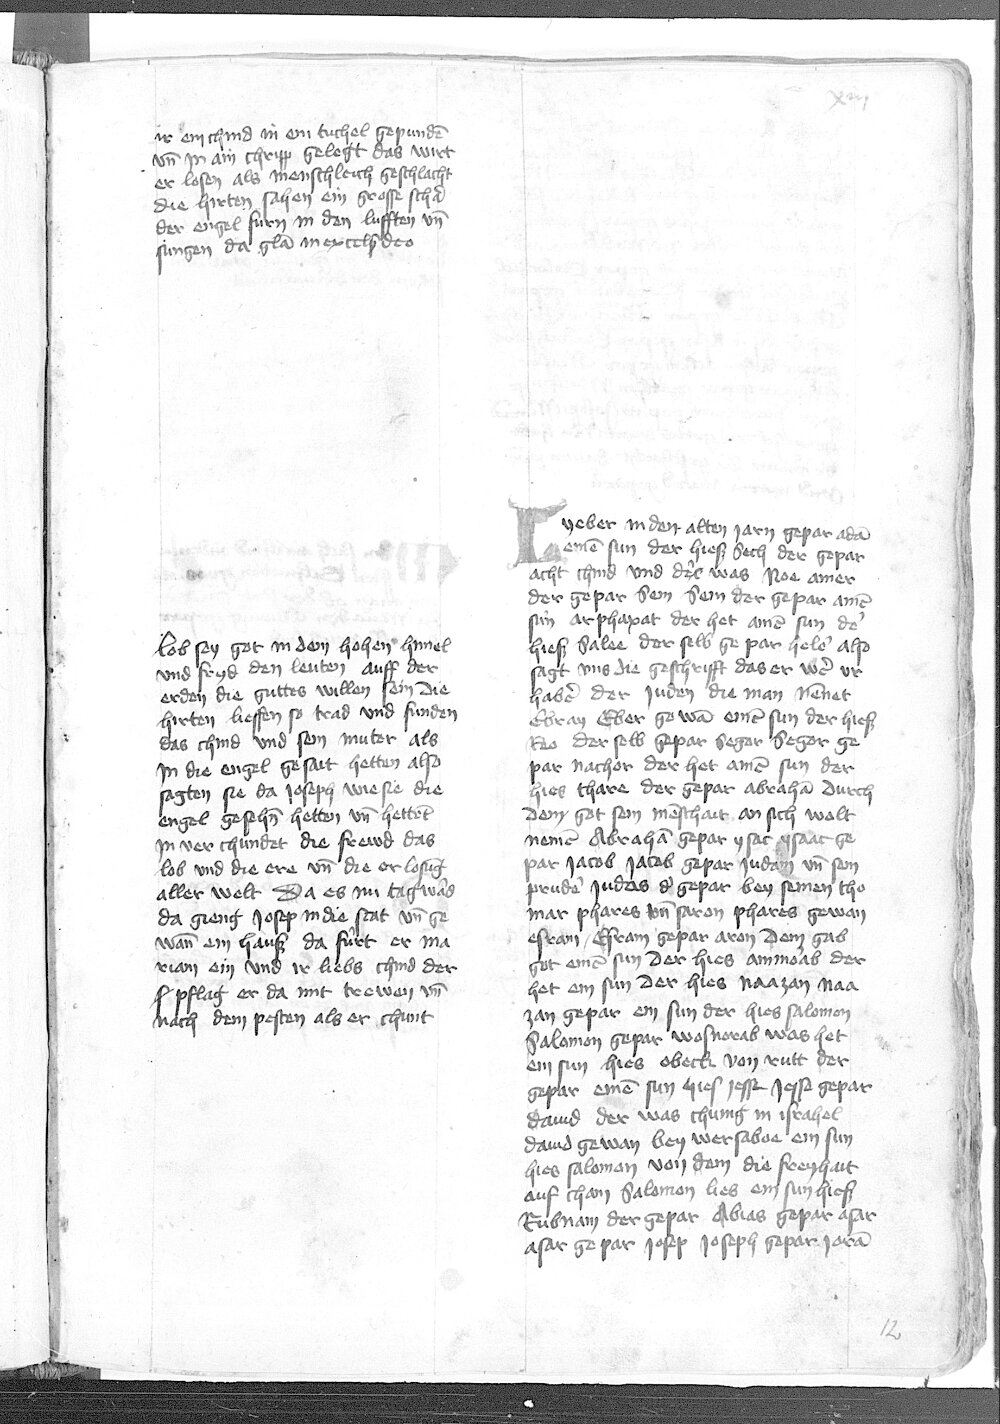 xiij
ir ein chind in ein tuchel gepundē
vn̄ in ain chripp gelegt das wirt
er losen als menschleich geschlächt
die hirten sahen ein grosse schā
der engel furn in den lufften vn̄
sungen da glā in excelß deo
Lob sey got in dem hohen himel
vnd fryd den leuten auff der
erden die guttes willen sein Die
hirten lieffen so trad vnd funden
das chind vnd sein muter als
in die engel gesait hetten also
sagten sie da joseph wie sie die
engel gesehn̄ hetten vn̄ hettēt
in ver chundet die frewd das
lob vnd die ere vn̄ die erlosūg
aller welt Da es nu tag ward
da gieng Josep in die stat vn̄ ge
wan̄ ein hauß da fürt er ma
riam ein vnd ir liebs chind der
pflag er da mit trewen vn̄
nach dem pesten als er chunt
Lyeber in den alten jarn gepar adā
einē sun der hieß Sech der gepar
acht chind vnd der was Noe ainer
der gepar Sem Sem der gepar ainē
sun arphaxat der het ainē sun dē
hieß Salee der selb ge par helē also
sagt uns die geschrifft das er wē vr
habē der juden die man nēnet
Ebray Eber ge wā einē sun der hieß
Reo der selb gepar Segor Segor ge
par nachor der het ainē sun der
hies thare der gepar abrahā durch
Dem got sein mēschait an sich wolt
nemē Abrahā gepar ysac ysaac ge
par jacob jacob gepar judam vn̄ sein
prudē judas d' gepar bey seinen tho
mar phares vn̄ saron phares gewan
esrom Esrom gepar aron Dem gab
got einē sun Der hies aminoab der
het ein sun Der hies naazan naa
zan gepar ein sun der hies salomon
Salomon gepar wosnorab was het
ein sun hies obeth von rutt der
gepar einē sun hies jesse Jesse gepar
dauid der was chunig in israhel
dauid gewan bey wersaboe ein sun
hies salomon von dem die freyhait
auf cham Salomon lies ein sun hieß
Rubnam der gepar Abias gepar asar
asar ge par josep joseph gepar jorā
12